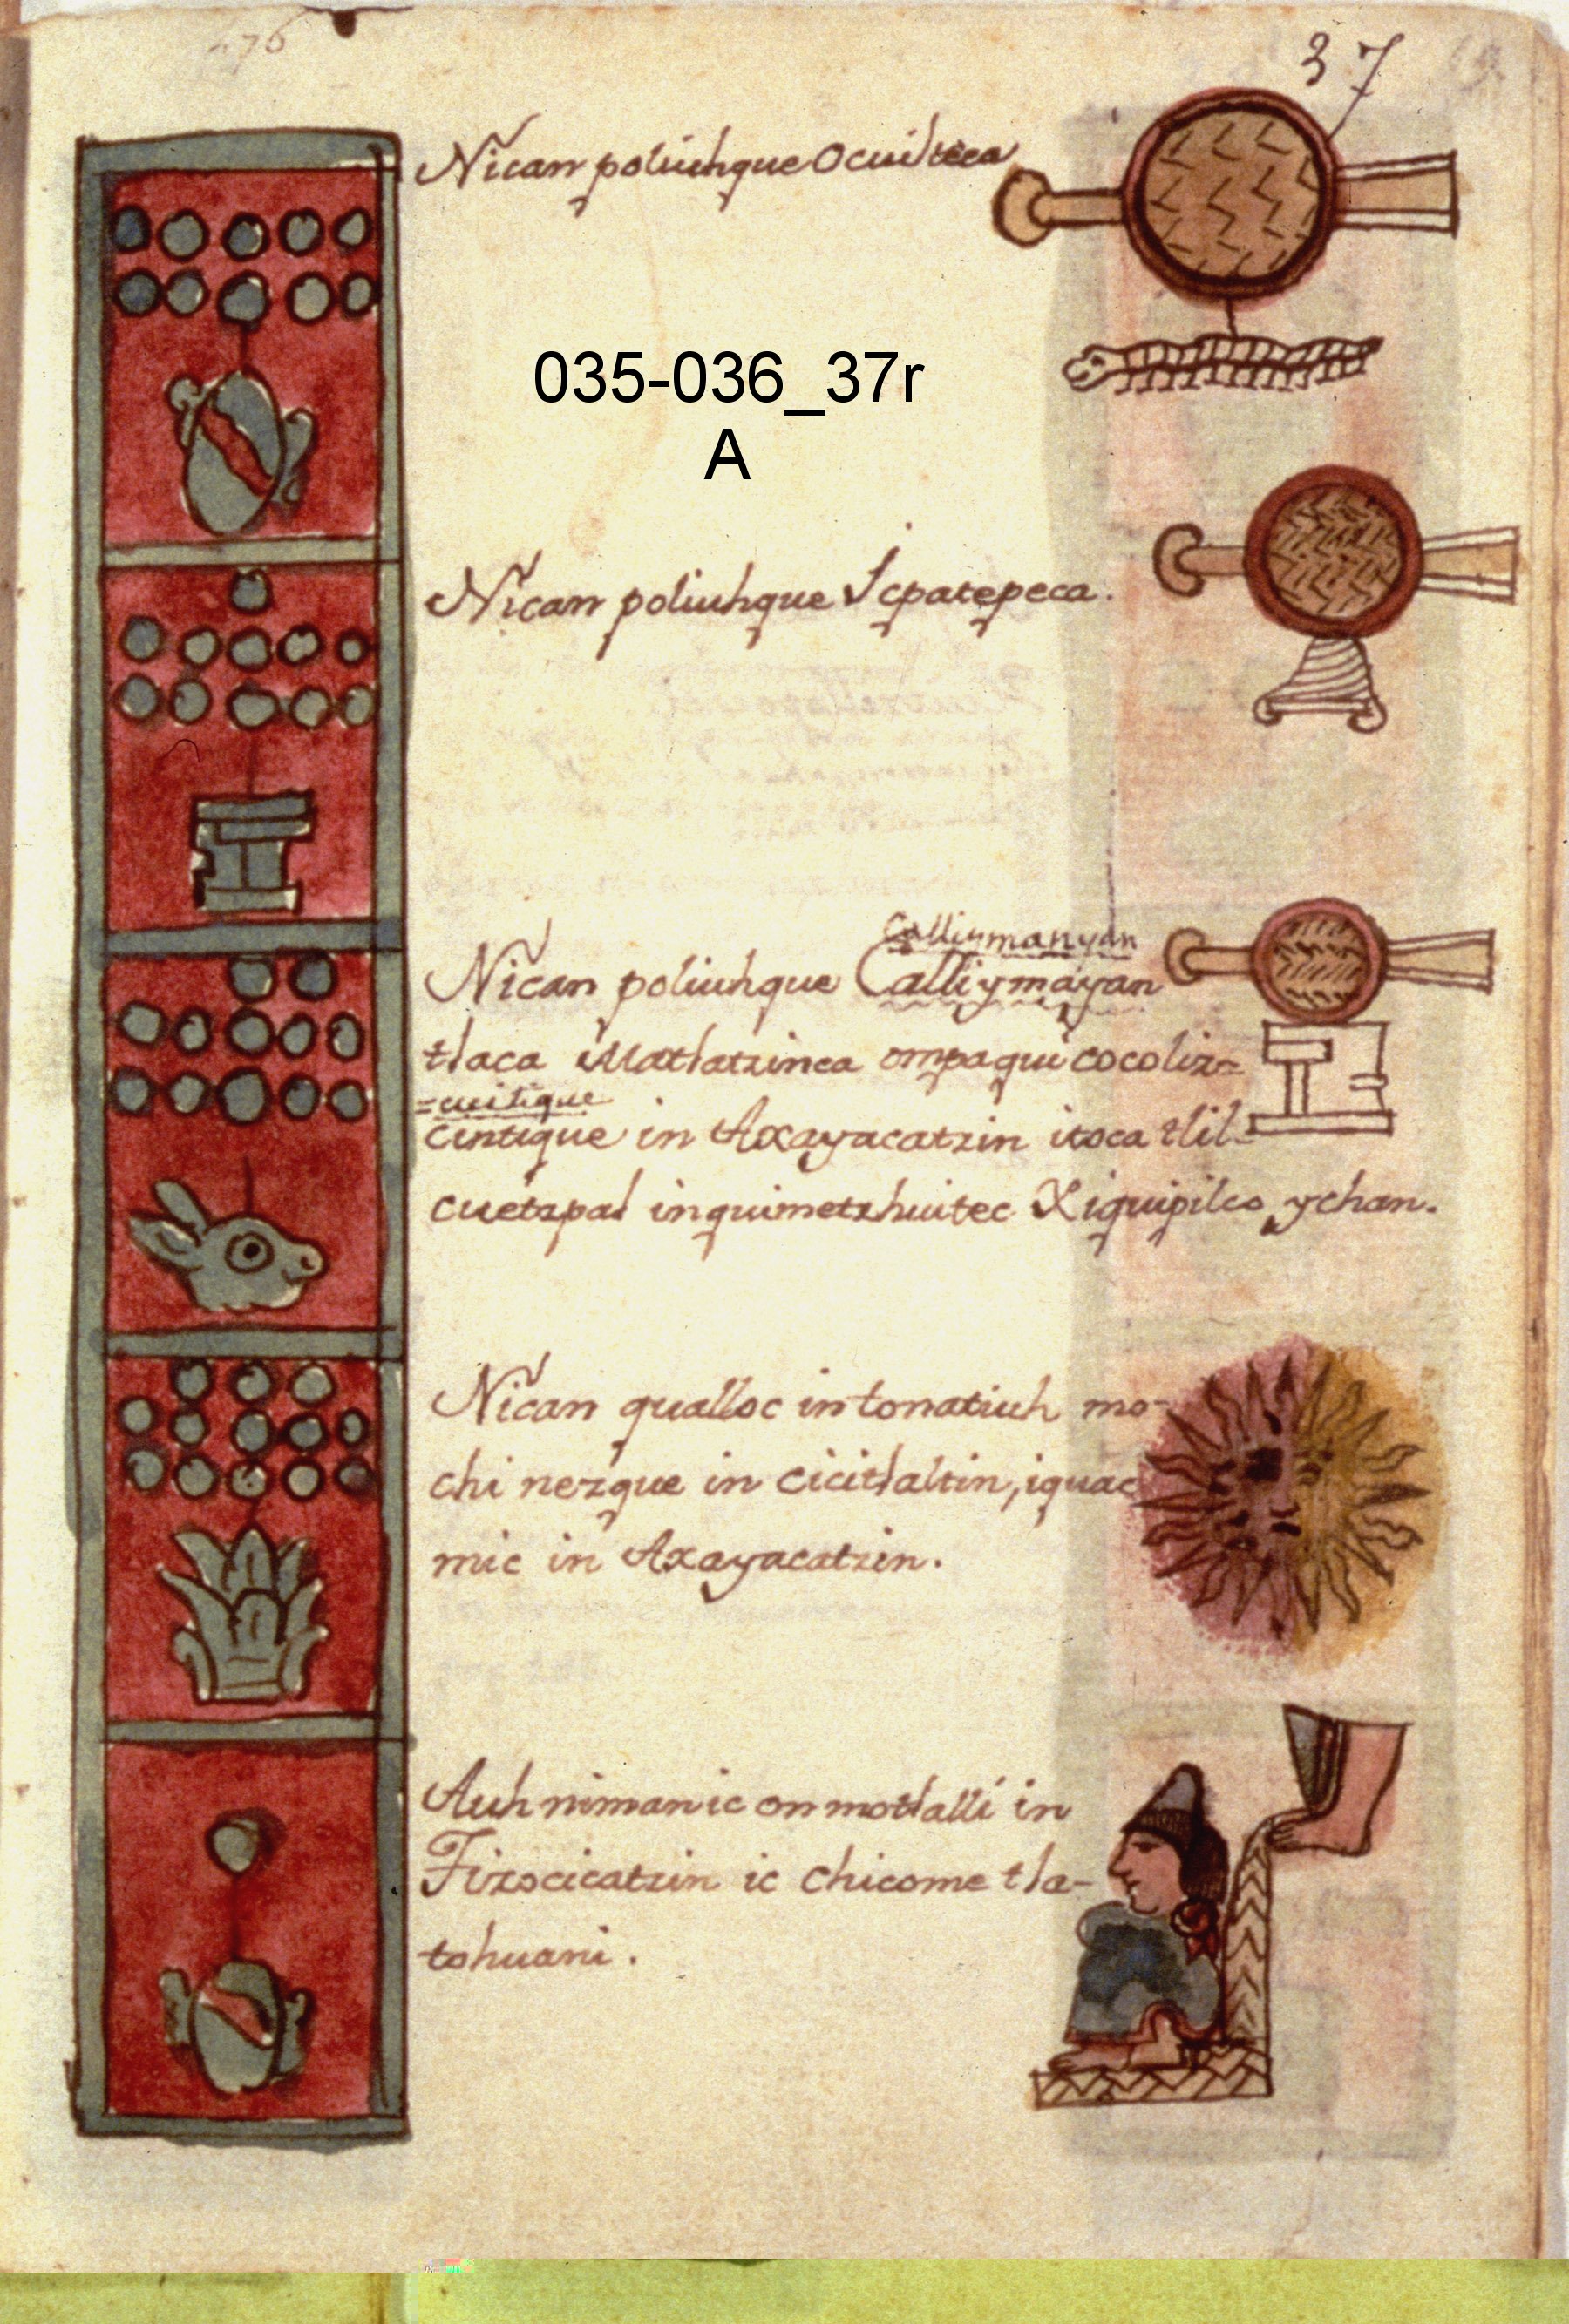 37
Nican poliuhque Ocuilteca
035-036_37r
A
Nican poliuhque Icpatepeca.
Calliymanyan
Nican poliuhque Calliymayan
tlaca Matlatzinca ompa qui cocoliz=
=cuitique
cintique in Axayacatzin itoca tlil=
cuetzpal inquimetzhuitec Xiquipilco ychan.
Nican qualloc in tonatiuh mo-
chi nezque in cicitlaltin, iquac
mic in Axayacatzin.
Auh niman ic on motlalli in
Tizocicatzin ic chicome tla-
tohuani.